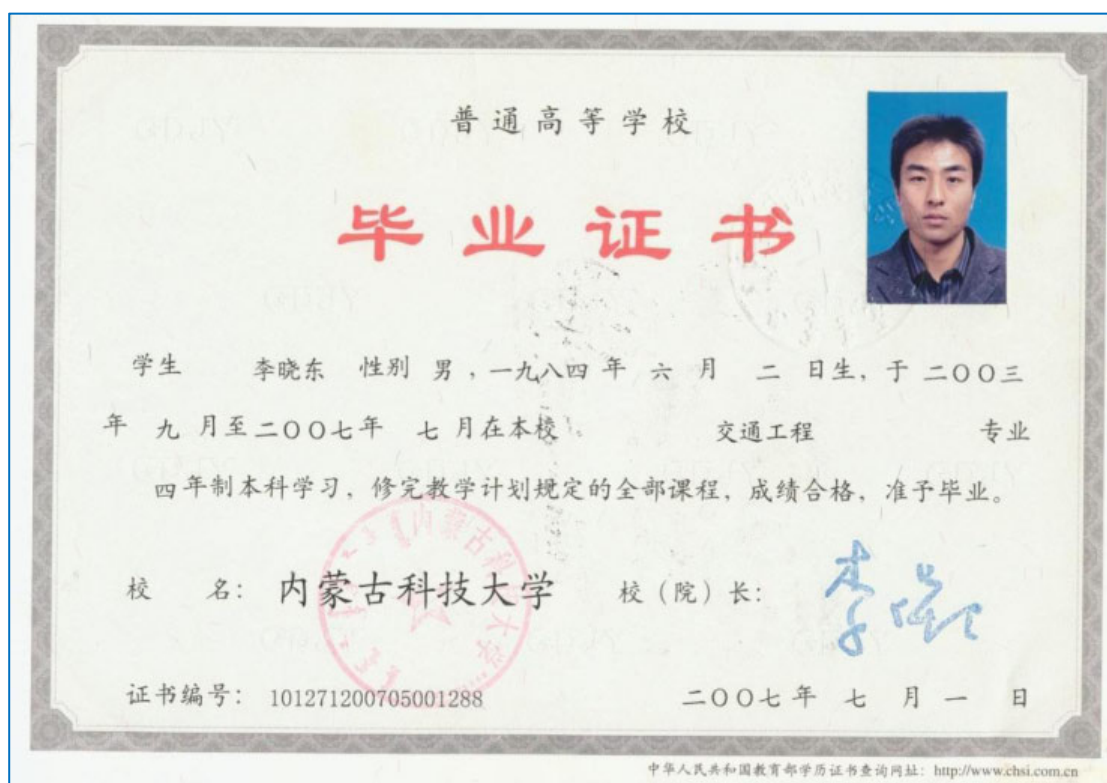 普通高等学校
毕业证书
学生 李晓东 性别 男 , 一九八四 年 六 月 二 日生, 于 二〇〇三
年 九 月至 二〇〇七年 七 月在本校 交通工程 专业
四年制本科学习, 修完教学计划规定的全部课程, 成绩合格, 准予毕业。
校 名: 内蒙古科技大学 校（院）长:
内蒙古科技大学
证书编号: 101271200705001288 二〇〇七年 七 月 一 日
中华人民共和国教育部学历证书查询网址: http://www.chsi.com.cn